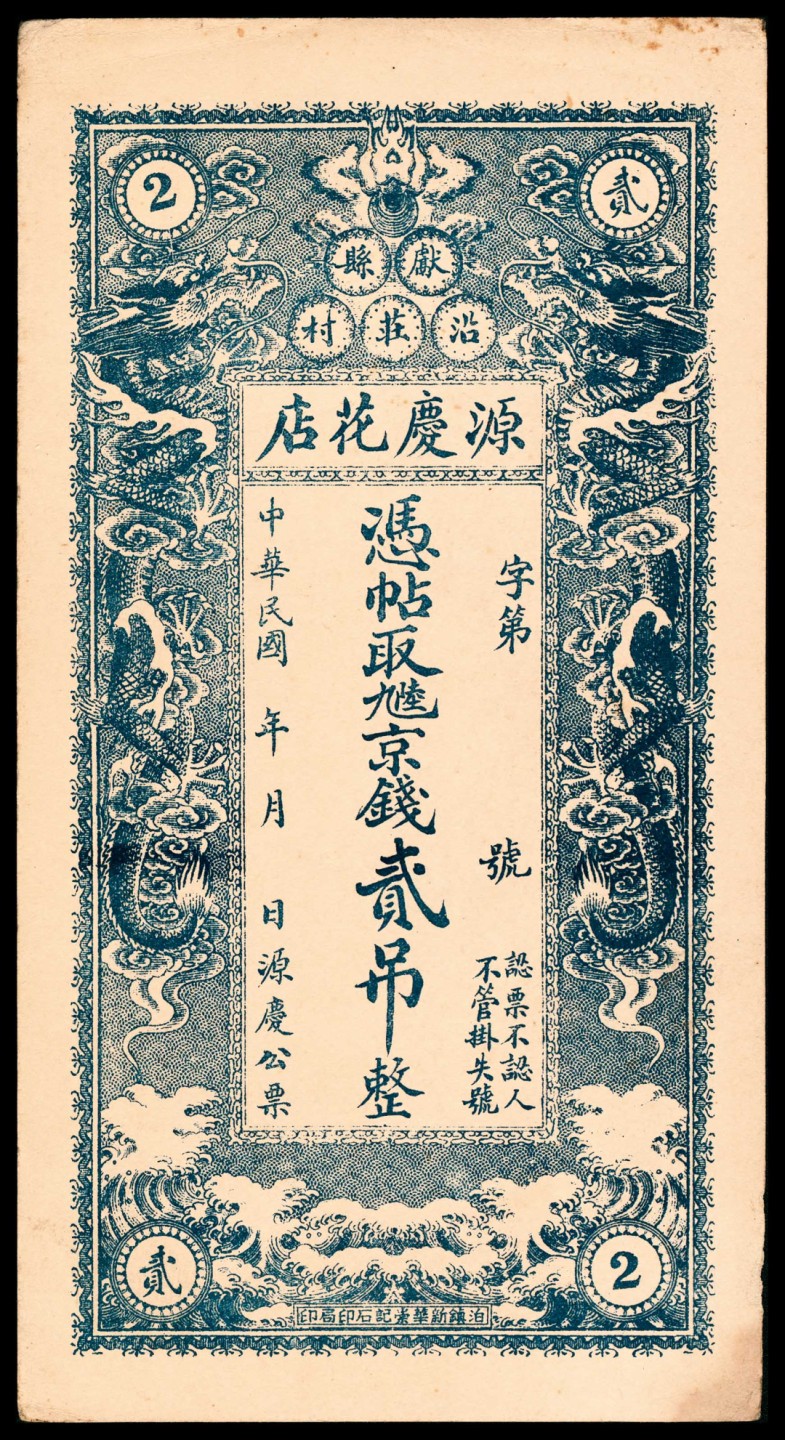 2
貳
獻縣
沿莊村
源慶花店
字第 號
認票不認人
不管掛失號
憑帖取九六陸京錢貳吊整
中華民國 年 月 日源慶公票
貳
2
泊鎮新華崇記石印局印